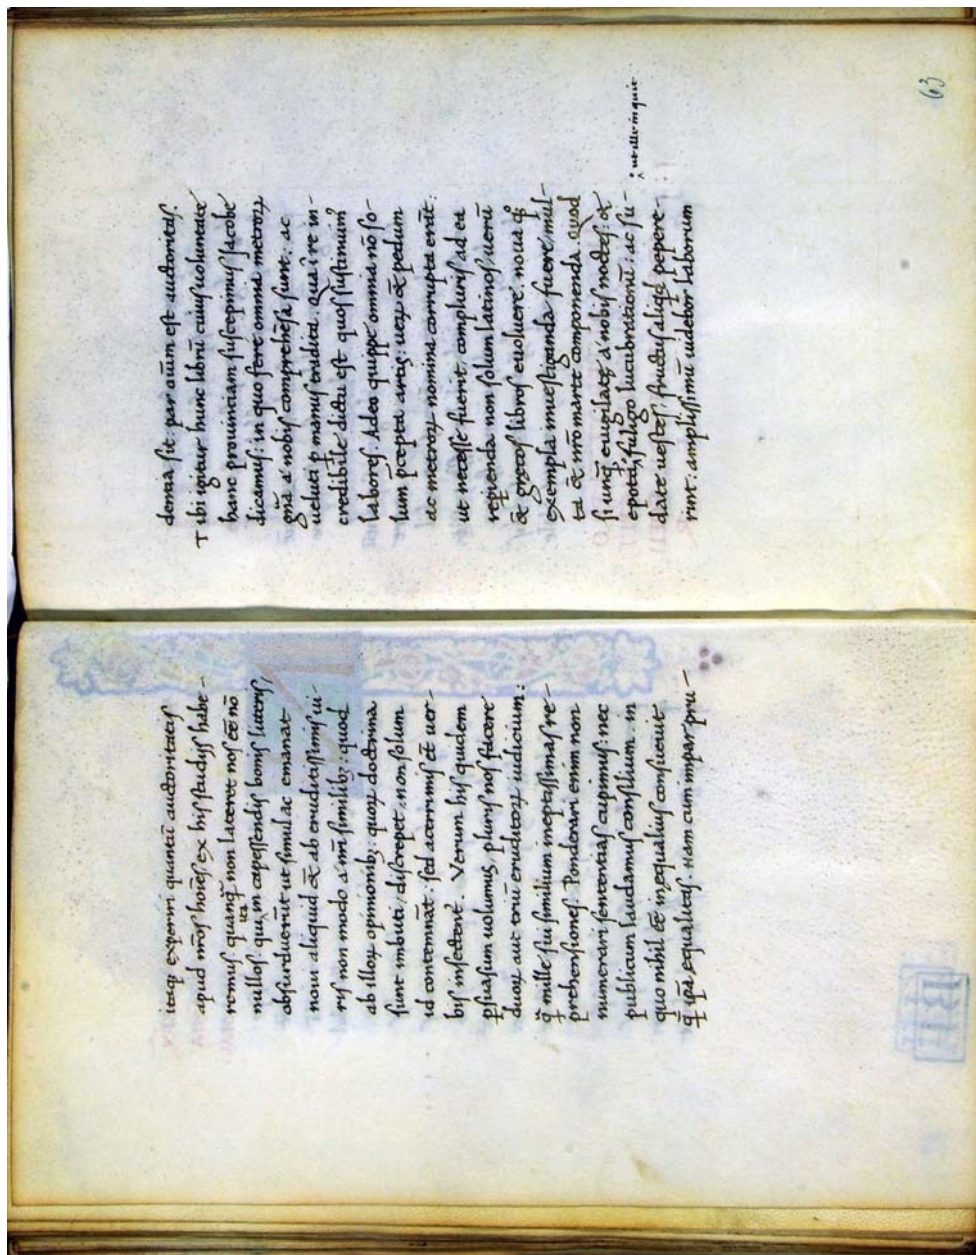 itaq; experiri quantū auctoritatis
apud nr̄os hoīes, ex his studijs habe-
remus quanq̄ non lateret nos eē nō
nullos. qui ita in capessendis bonis litteris,
obsurduerūt ut simul ac emanat
noui aliquid & ab eruditissimis ui-
ris non modo a nr̄i similib; : quod
ab illoꝝ opinionib; quoꝝ doctrina
sunt imbuti, discrepet, non solum
id contemnāt : sed acerrimis &̄ uer-
bis insectent̄. Verum his quidem
ꝑsuasum uolumus, pluris nos facere
duoꝝ aut triū eruditoꝝ iudicium :
q̄ mille sui similium ineptissimas re-
prehensiones. Ponderari enim non
numerari sententias cupimus : nec
publicum laudamus consilium . in
quo nihil eē inęqualius consueuit
q̄ ip̄a ęqualitas. Nam cum impar pru-
dentia sit : par oīum est auctoritas.
Tibi igitur hunc librū cuius uoluntate
hanc prouinciam suscepimus Jacobe
dicamus : in quo fere omnia metroꝝ
gn̄a a nobis comprehēsa sunt . ac
ueluti ꝑ manus tradita. Qua ī re in-
credibile dictu est quos sustinuim9
labores. Adeo quippe omnia nō so-
lum pręcepta artis : ueꝝ &̄ pedum
ac metroꝝ nomina corrupta erāt.
ut necesse fuerit, compluris ad ea
reperienda non solum latinos, uerū
&̄ gręcos libros euoluere. noua q;
exempla inuestiganda fuere, mul-
ta &̄ nr̄o marte componenda. Quod
si unq̄ euigilatę a nobis noctes : &
epota, ut ille inquit fuligo lucubrationū : ac su-
date uestes, fructus aliq̄d pepere-
runt . amplissimū uidebor laborum
63